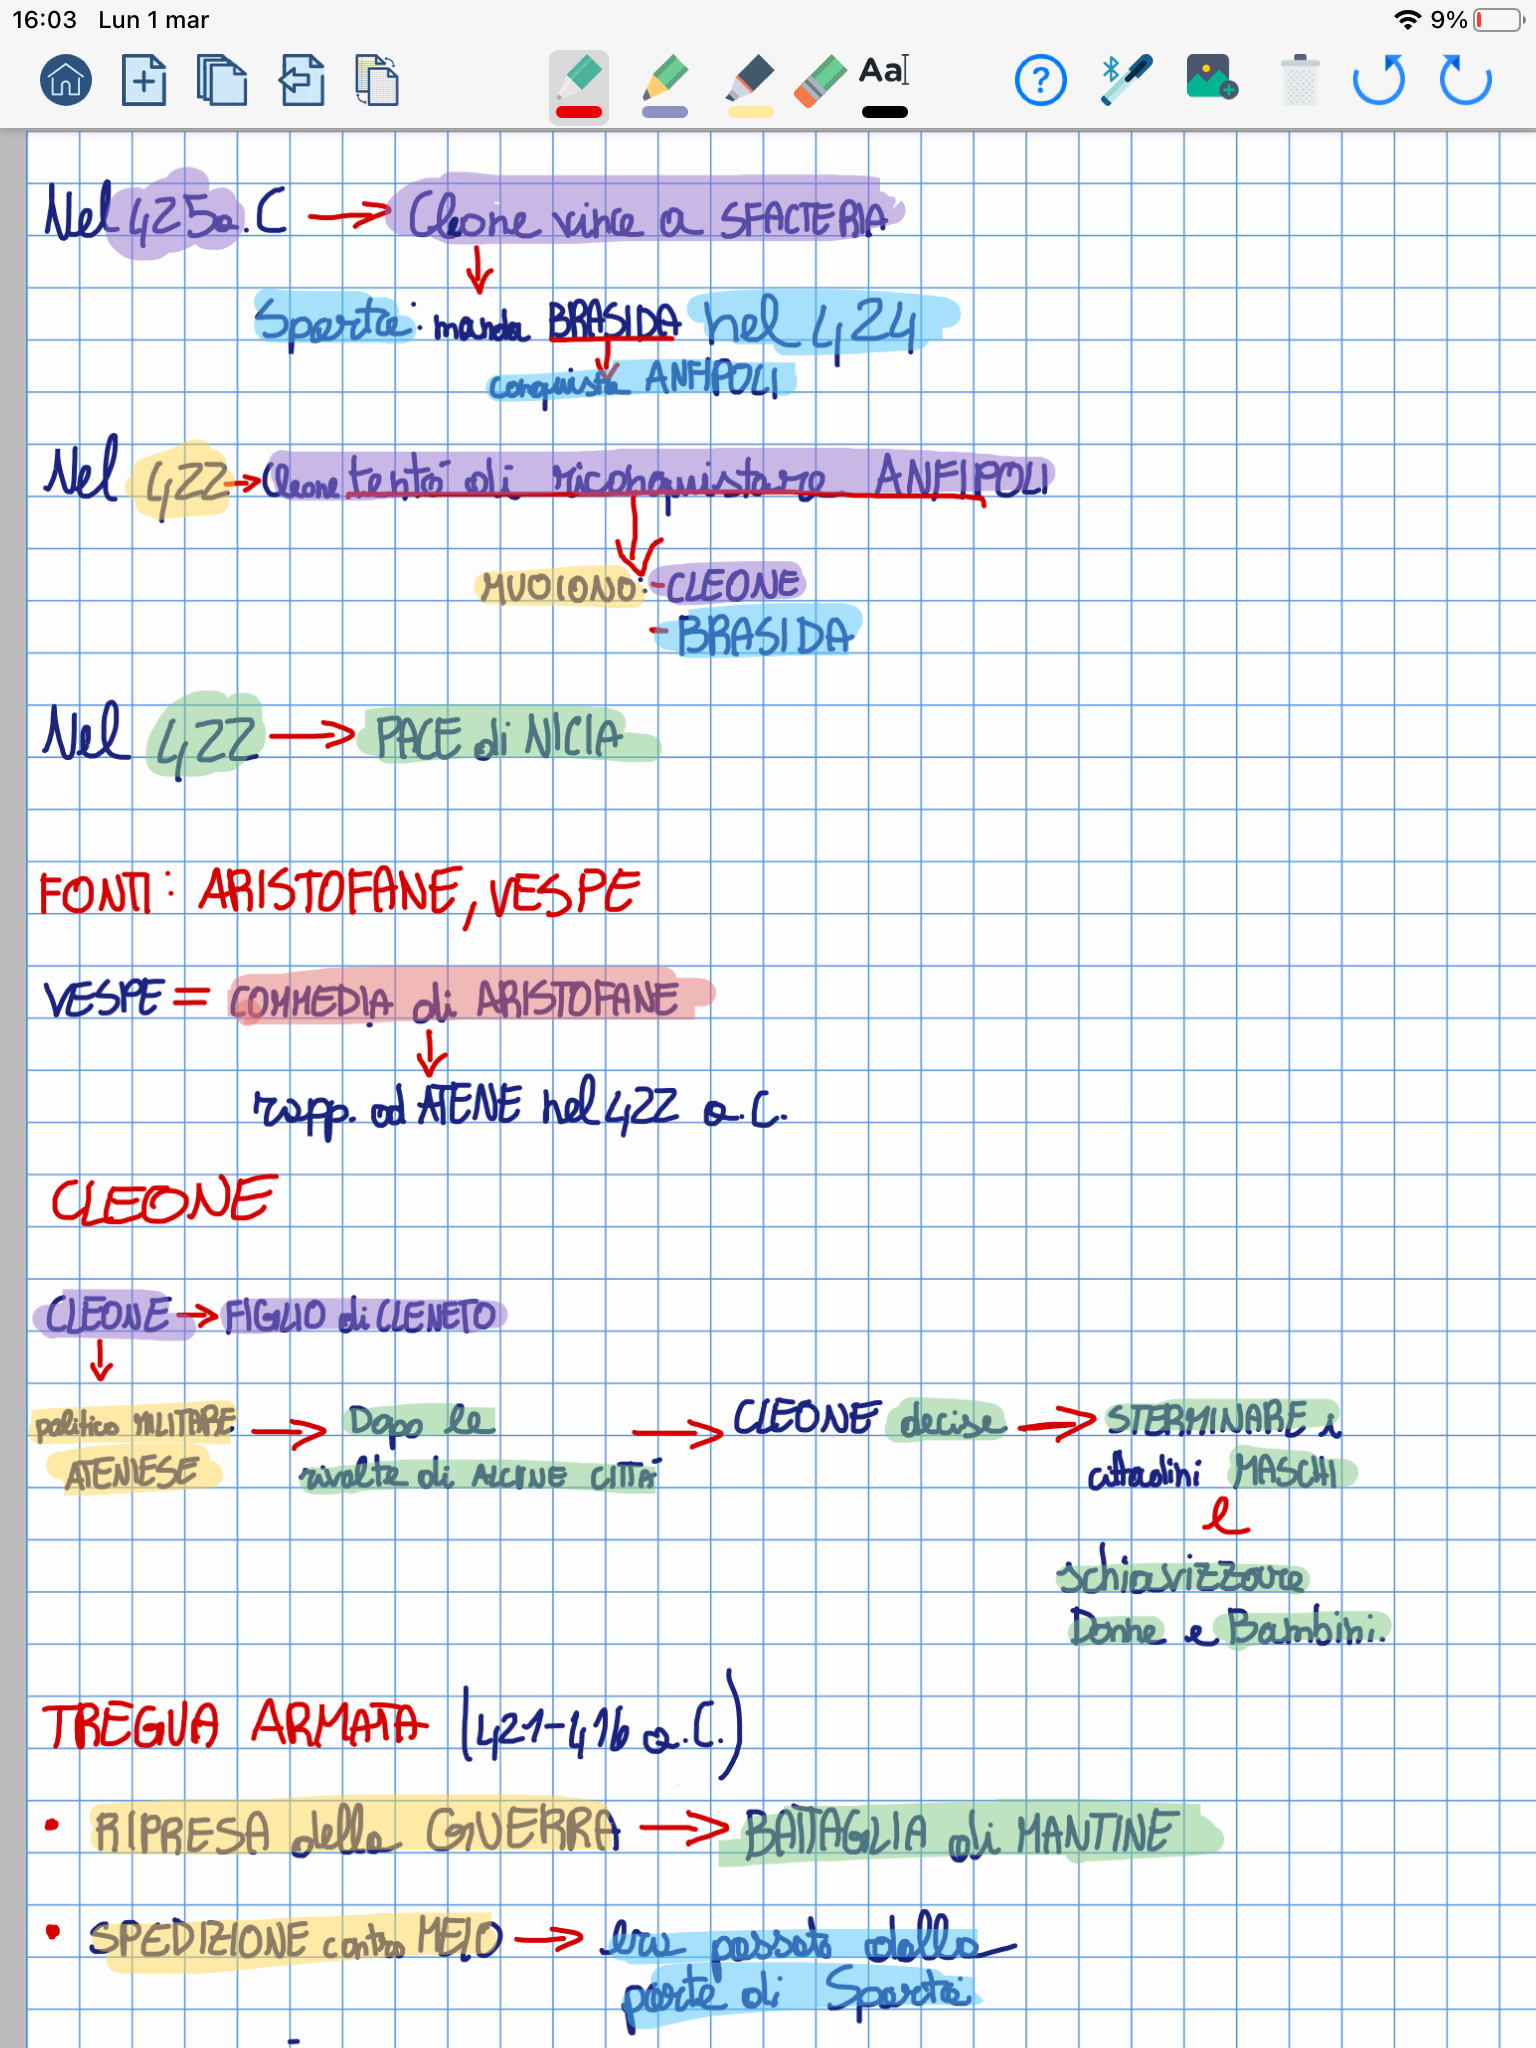 16:03 Lun 1 mar 9%
Aa
Nel 425a.C → Cleone vince a SFACTERIA
Sparta: manda BRASIDA nel 424
conquista ANFIPOLI
Nel 422 → Cleone tentò di riconquistare ANFIPOLI
MUOIONO: - CLEONE
- BRASIDA
Nel 422 → PACE di NICIA
FONTI: ARISTOFANE, VESPE
VESPE = COMMEDIA di ARISTOFANE
rapp. ad ATENE nel 422 a.C.
CLEONE
CLEONE → FIGLIO di CLENETO
politico MILITARE → Dopo le → CLEONE decise → STERMINARE i
ATENIESE rivolte di ALCUNE CITTÀ cittadini MASCHI
e
schiavizzare
Donne e Bambini.
TREGUA ARMATA (421-416 a.C.)
• RIPRESA della GUERRA → BATTAGLIA di MANTINE
• SPEDIZIONE contro MELO → era passata dalla
parte di Sparta